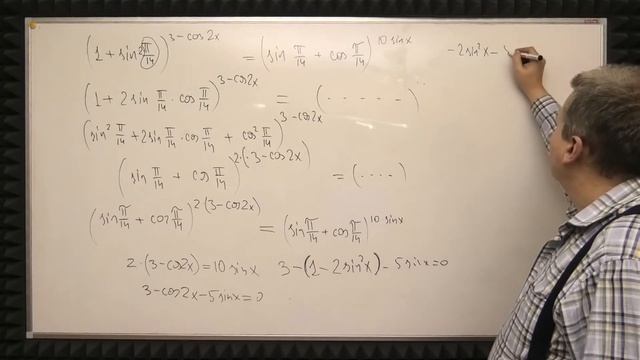 (1 + sin 2π/14)^(3-cos2x) = (sin π/14 + cos π/14)^(10 sinx)
(1 + 2 sin π/14 · cos π/14)^(3-cos2x) = (- - - - -)
(sin² π/14 + 2sin π/14 · cos π/14 + cos² π/14)^(3-cos2x)
(sin π/14 + cos π/14)^(2·(3-cos2x)) = (- - - -)
(sin π/14 + cos π/14)^(2·(3-cos2x)) = (sin π/14 + cos π/14)^(10 sinx)
2·(3-cos2x) = 10 sinx
3-cos2x-5sinx=0
3-(1-2sin²x)-5sinx=0
-2sin²x-